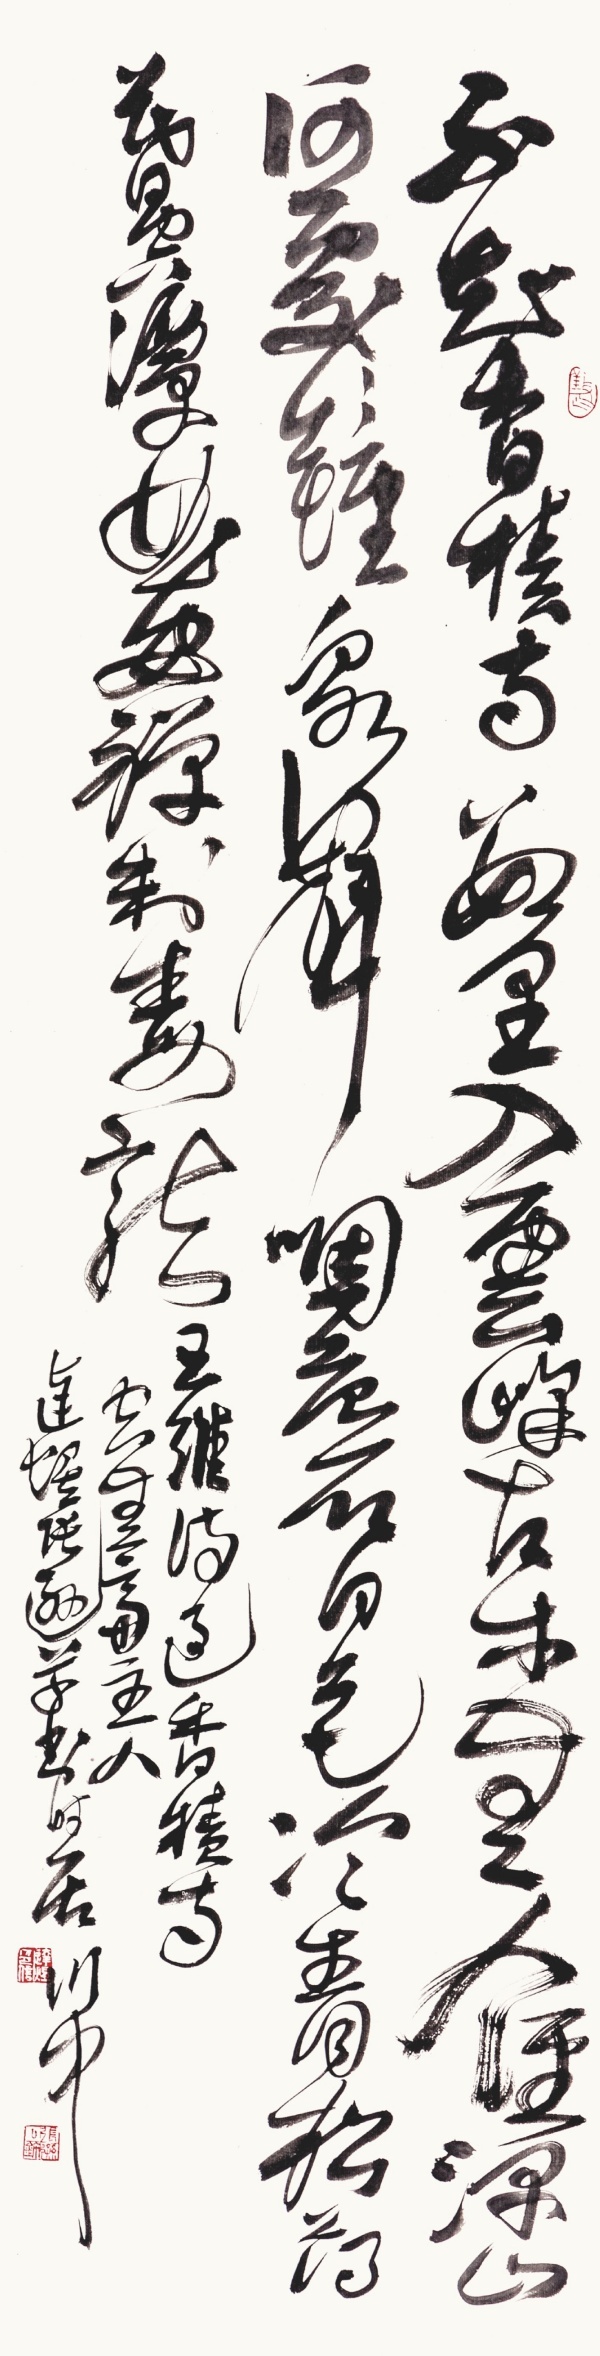 不知香積寺數里入雲峰古木無人徑深山
何處鐘泉聲咽危石日色冷青松薄
暮空潭曲安禪制毒龍
王維诗过香積寺
斋主人
草书时居